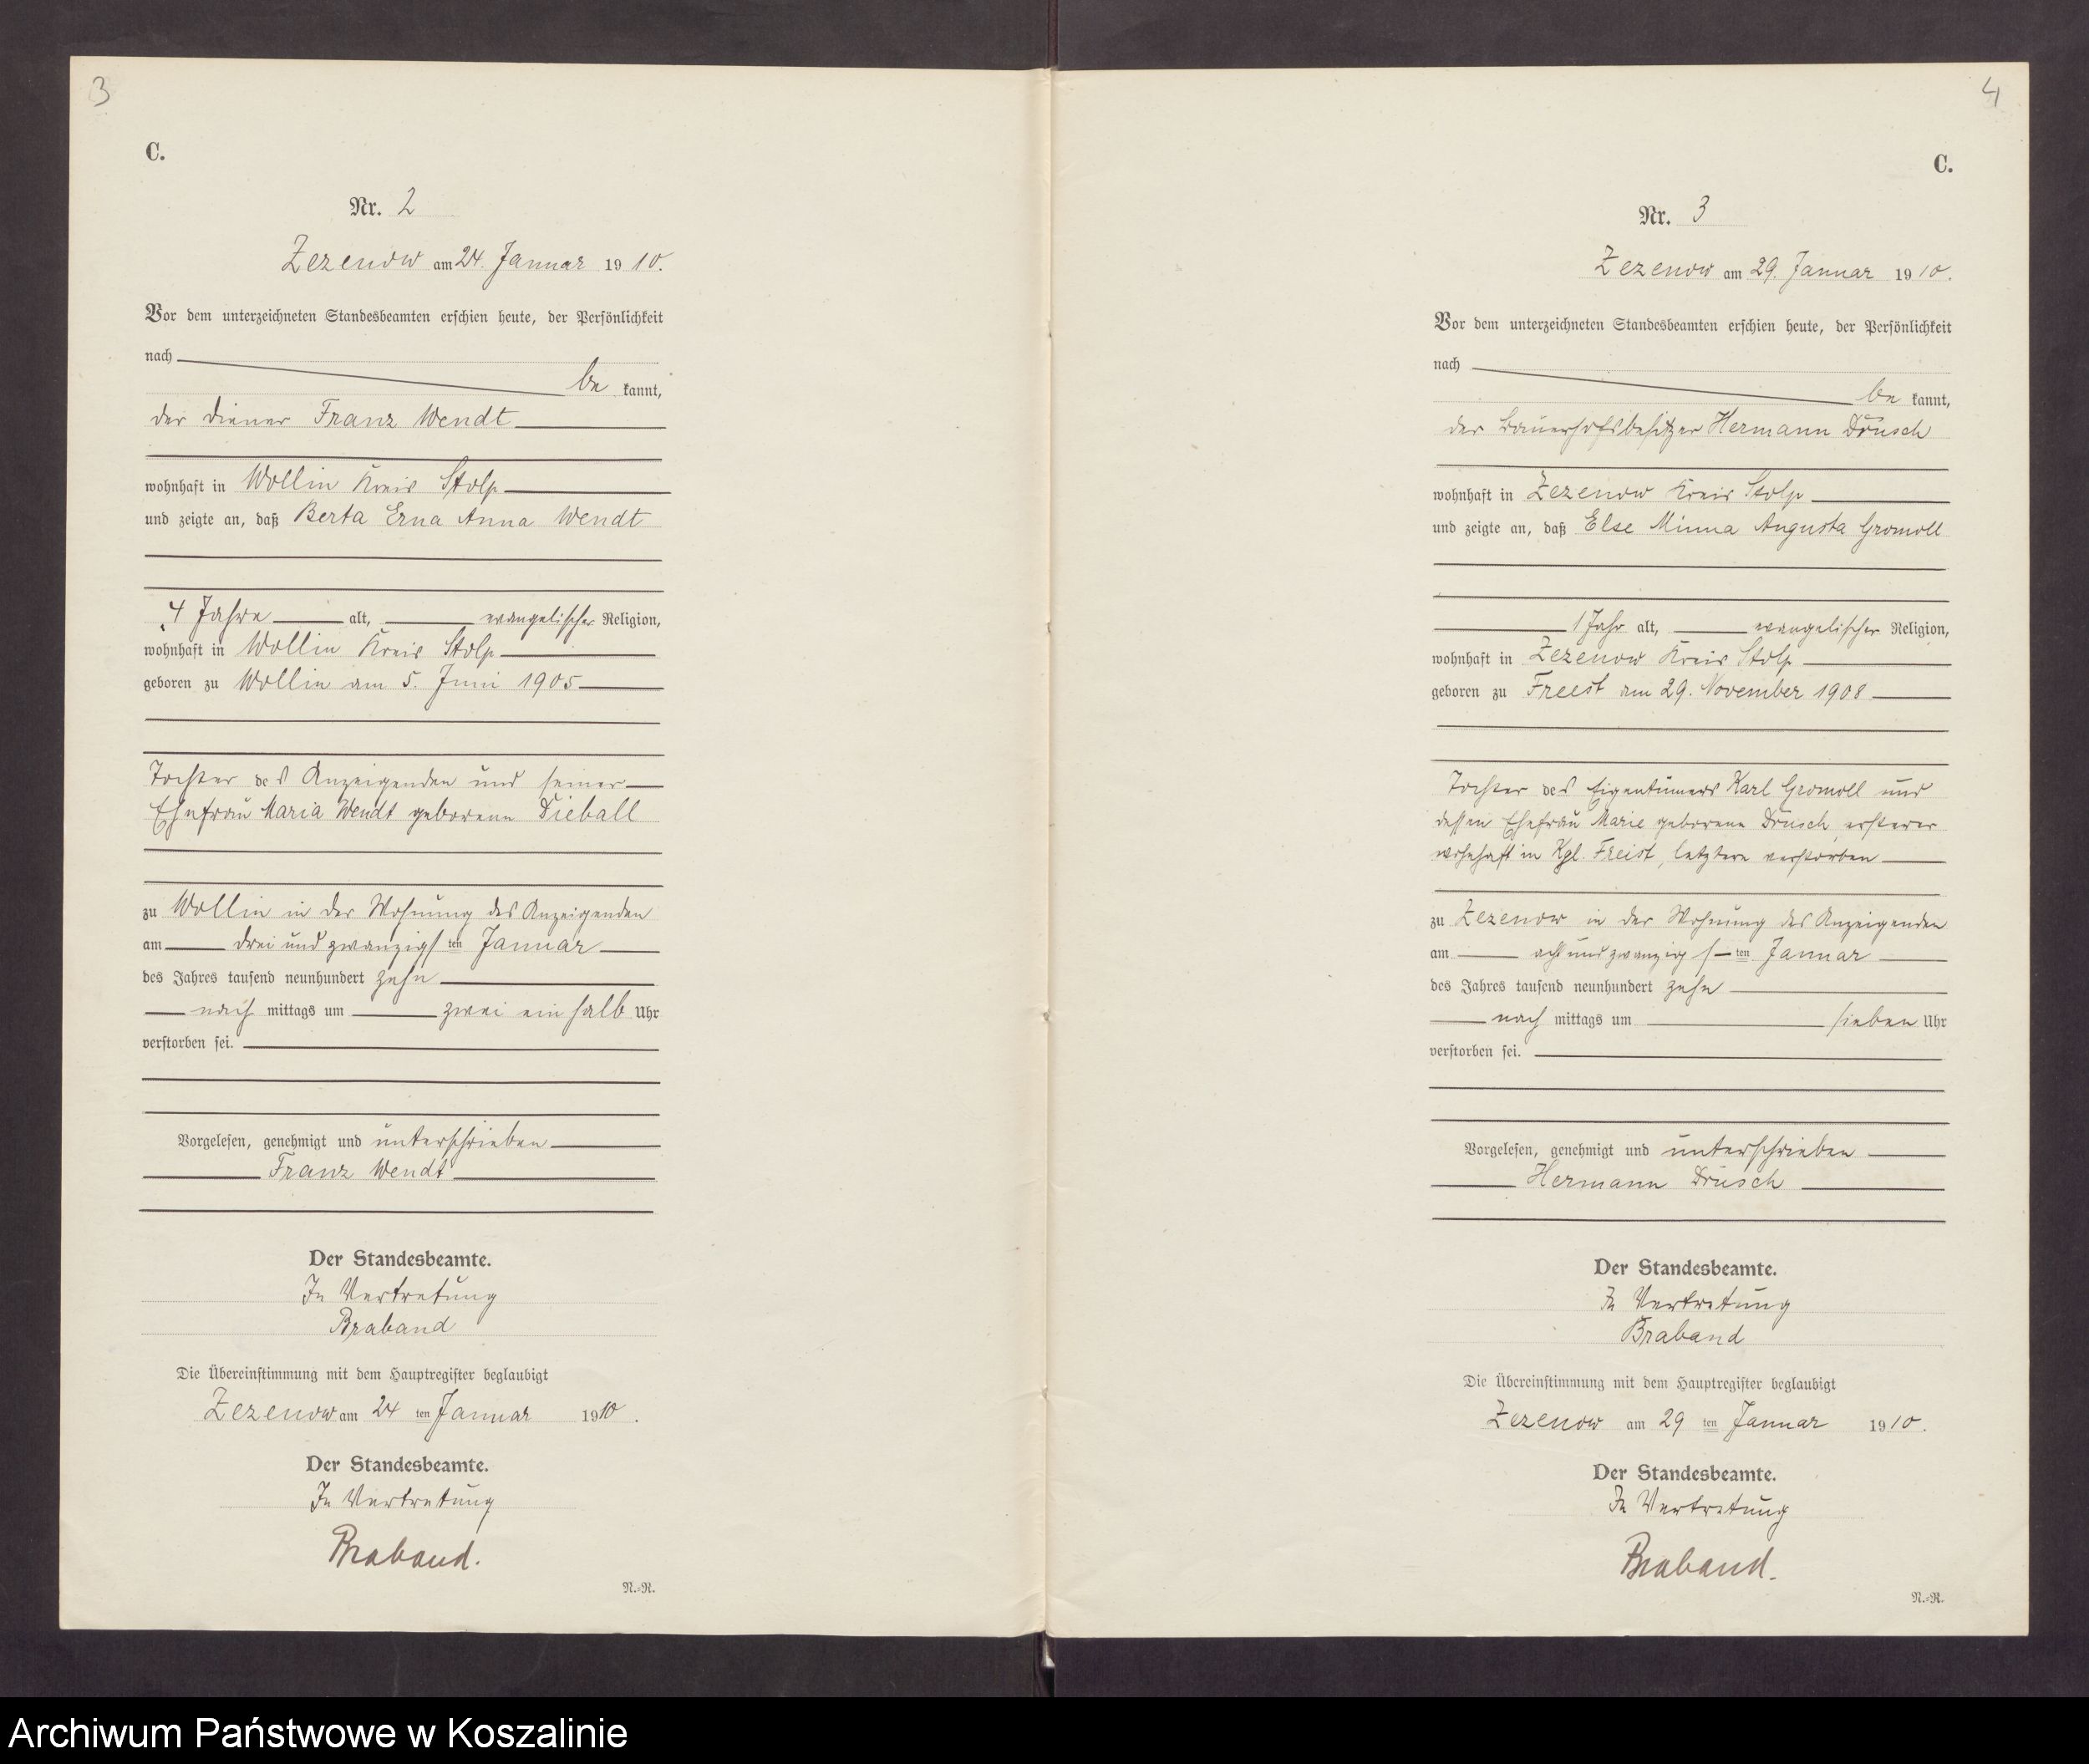 3
C.
Nr. 2
Zezenow am 24. Januar 1910.
Vor dem unterzeichneten Standesbeamten erschien heute, der Persönlichkeit
nach
be kannt,
der Diener Franz Wendt
wohnhaft in Wollin Kreis Stolp
und zeigte an, daß Berta Erna Anna Wendt
4 Jahre alt, evangelischer Religion,
wohnhaft in Wollin Kreis Stolp
geboren zu Wollin am 5. Juni 1905
Tochter des Anzeigenden und seiner
Ehefrau Maria Wendt geborenen Dieball
zu Wollin in der Wohnung des Anzeigenden
am drei und zwanzigsten Januar
des Jahres tausend neunhundert zehn
nach mittags um zwei ein halb Uhr
verstorben sei.
Vorgelesen, genehmigt und unterschrieben
Franz Wendt
Der Standesbeamte.
In Vertretung
Braband
Die Übereinstimmung mit dem Hauptregister beglaubigt
Zezenow am 24 ten Januar 1910.
Der Standesbeamte.
In Vertretung
Braband.
N.-R.
4
C.
Nr. 3
Zezenow am 29. Januar 1910.
Vor dem unterzeichneten Standesbeamten erschien heute, der Persönlichkeit
nach
be kannt,
der Bauerhofsbesitzer Hermann Drusch
wohnhaft in Zezenow Kreis Stolp
und zeigte an, daß Else Minna Augusta Gromoll
1 Jahr alt, evangelischer Religion,
wohnhaft in Zezenow Kreis Stolp
geboren zu Freest am 29. November 1908
Tochter des Eigentümers Karl Gromoll und
dessen Ehefrau Marie geborene Drusch, ersterer
wohnhaft in Kgl. Freist, letztere verstorben
zu Zezenow in der Wohnung des Anzeigenden
am acht und zwanzigsten Januar
des Jahres tausend neunhundert zehn
nach mittags um sieben Uhr
verstorben sei.
Vorgelesen, genehmigt und unterschrieben
Hermann Drusch
Der Standesbeamte.
In Vertretung
Braband
Die Übereinstimmung mit dem Hauptregister beglaubigt
Zezenow am 29 ten Januar 1910.
Der Standesbeamte.
In Vertretung
Braband.
N.-R.
Archiwum Państwowe w Koszalinie